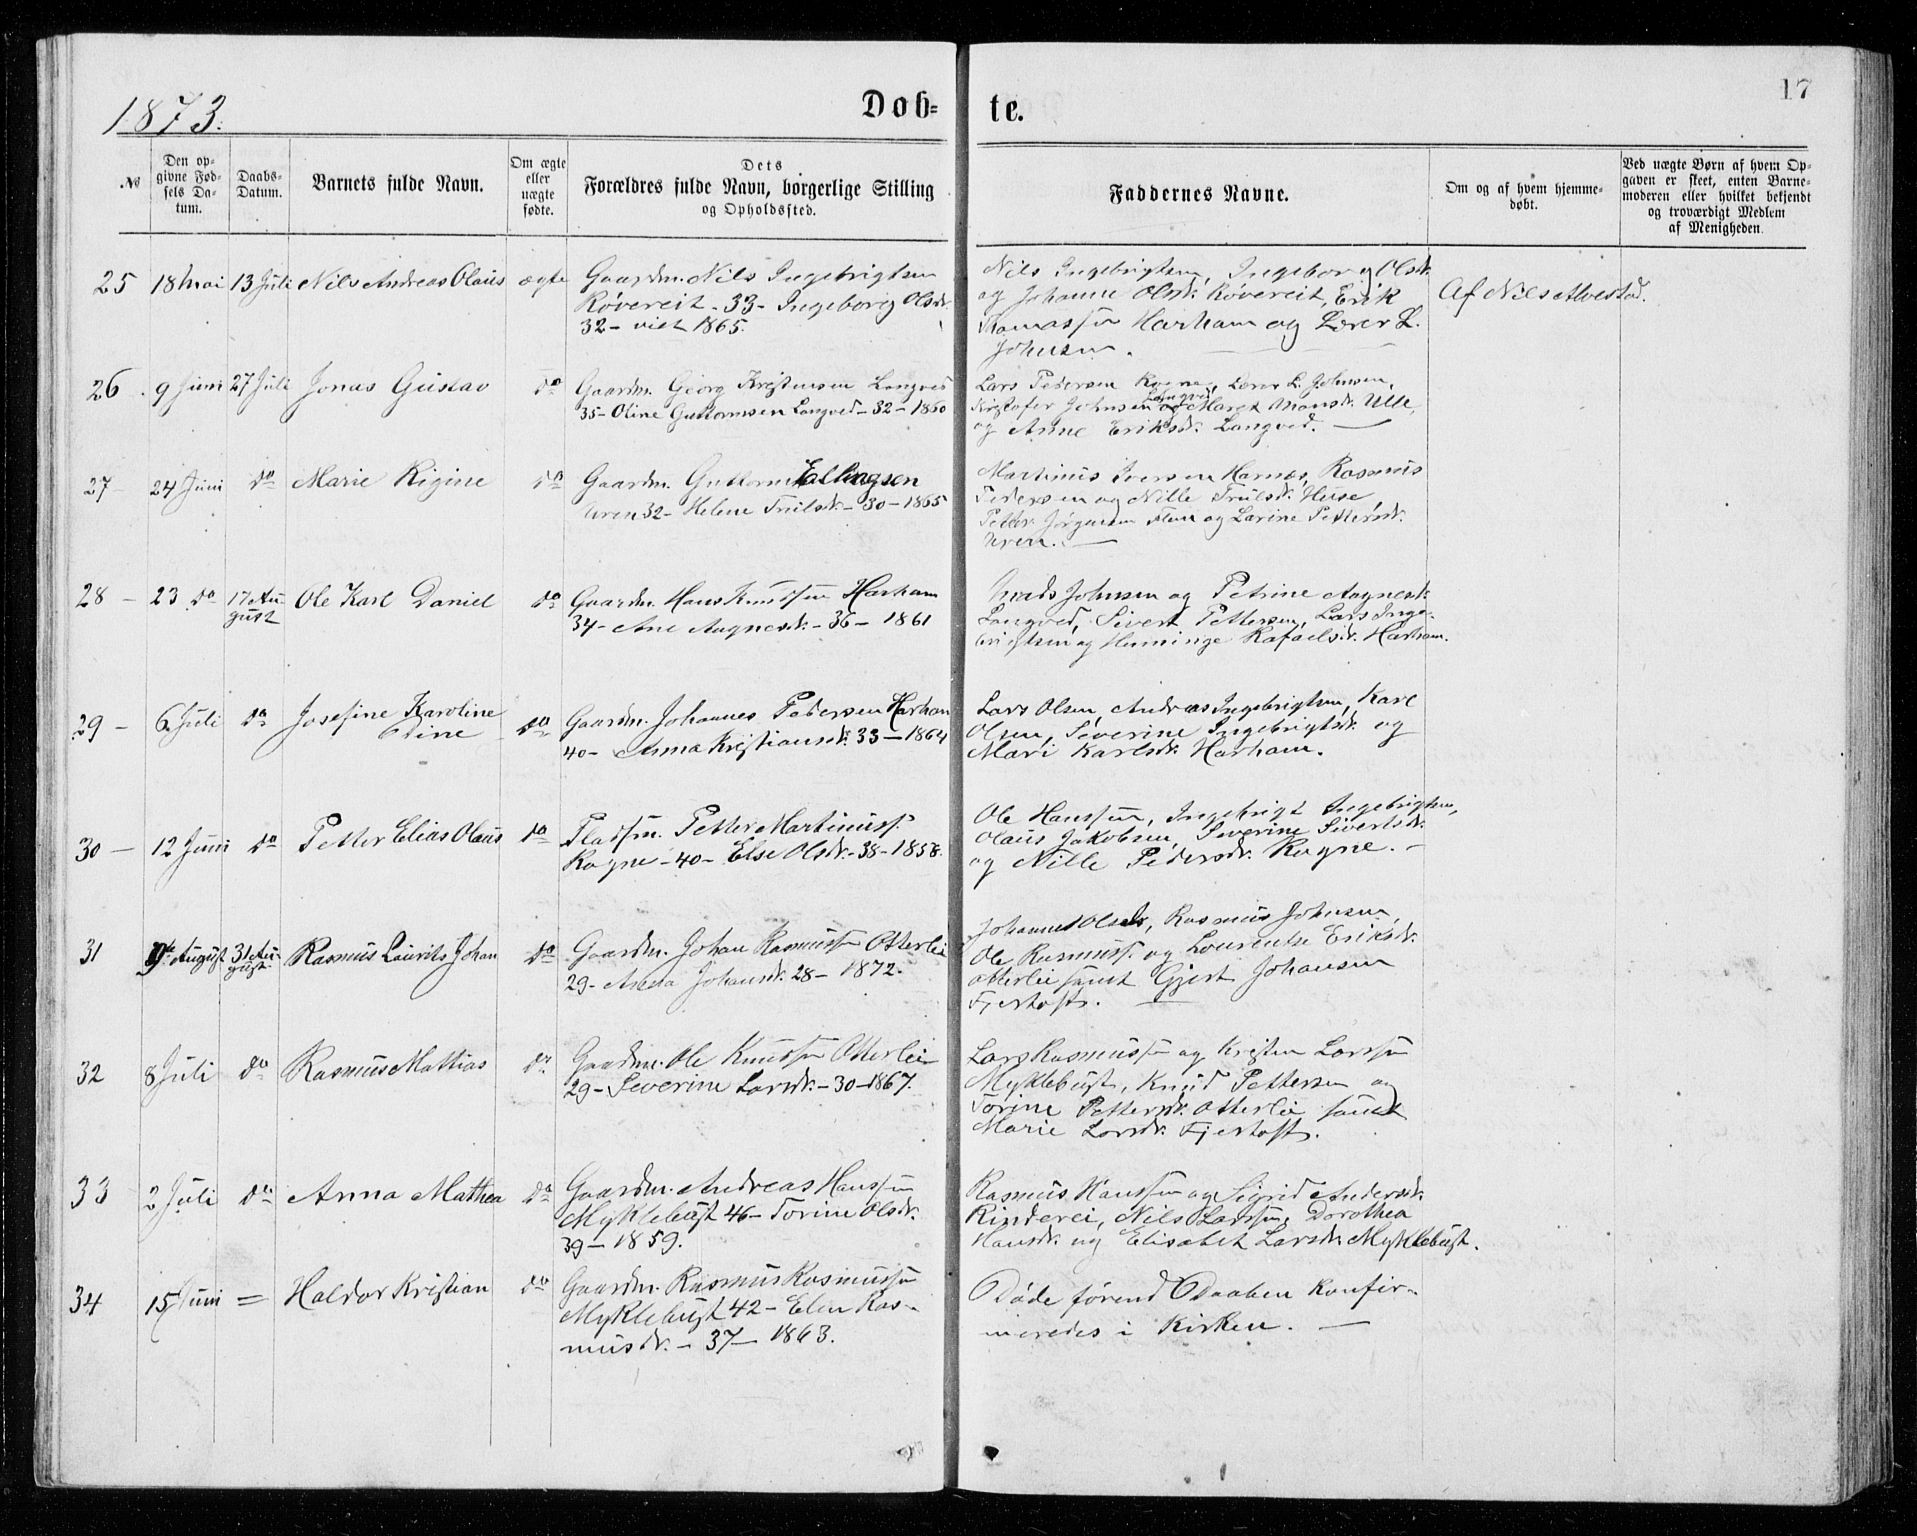 1873.
Døb-
te.
17
№
Den op-
givne Fød-
sels Da-
tum.
Daabs-
Datum.
Barnets fulde Navn.
Om ægte
eller
uægte
fødte.
Dets
Forældres fulde Navn, borgerlige Stilling
og Opholdssted.
Faddernes Navne.
Om og af hvem hjemme-
døbt.
Ved uægte Børn af hvem Op-
gaven er skeet, enten Barne-
moderen eller hvilket bekjendt
og troværdigt Medlem
af Menigheden.
25 18 Mai 13 Juli Nils Andreas Olaus ægte
Gaardm. Nils Ingebrigtsen
Røvereit - 33 - Ingeborg Olsdr.
32 - viet 1865.
Nils Ingebrigtsen, Ingeborg Olsdr.
og Johanne Olsdr. Røvereit, Erik
Thomassen Harham og Lærer L.
Johnsen.
Af Nils Alvestad.
26 9 Juni 27 Juli Jonas Gustav do
Gaardm. Georg Kristensen Longved
35 - Oline Guttormsen Longved - 32 - 1860
Lars Pedersen Rogne, Lærer L. Johnsen,
Kristofer Johnsen Longved og Maret Monsdr. Ulle,
og Anne Eriksdr. Longved.
27 24 Juni do Marie Rigine do
Gaardm. Guttorm Ellingsen
Uren 32 - Helene Trulsdr. - 30 - 1865
Martinus Iversen Harnes, Rasmus
Pedersen og Nille Trulsdr. Huse
Petter Jørgensen Flem og Larine Pettersdr.
Uren.
28 - 23 do 17 Au-
gust Ole Karl Daniel do
Gaardm. Hans Knudsen Harham
34 - Ane Aagnesdr. - 36 - 1861
Mads Johnsen og Petrine Aagnesdr.
Longved, Sivert Pettersen, Lars Inge-
brigtsen og Henninge Rafaelsdr. Harham.
29 - 6 Juli do Josefine Karoline
Oline do
Gaardm. Johannes Pedersen Harham
40 - Anna Kristiansdr. 33 - 1864
Lars Olsen, Andreas Ingebrigtsen, Karl
Olsen, Severine Ingebrigtsdr. og
Mari Karlsdr. Harham.
30 - 12 Juni do Petter Elias Olaus do
Pladsm. Petter Martinuss.
Rogne - 40 - Else Olsdr. - 38 - 1858.
Ole Hanssen, Ingebrigt Ingebrigtsen,
Olaus Jakobsen, Severine Sivertsdr.
og Nille Pedersdr. Rogne. -
31 9de August 31 Au-
gust Rasmus Laurits Johan do
Gaardm. Johan Rasmussen Otterlei
29 - Johansdr. 28 - 1872.
Johannes Olsen, Rasmus Johnsen,
Ole Rasmuss. og Lourentse Eriksdr.
Otterlei samt Gjert Johansen
Fjertoft.
32 8 Juli do Rasmus Mathias do
Gaardm. Ole Knudsen Otterlei
29 - Severine Larsdr. - 30 - 1867.
Lars Rasmussen og Kristen Larssen
Myklebust, Knud Pettersen og
Torine Pettersdr. Otterlei samt
Marie Larsdr. Fjertoft.
33 2 Juli do Anna Mathea do
Gaardm. Andreas Hanssen
Myklebust 46 - Torine Olsdr.
39 - 1859.
Rasmus Hanssen og Sigrid Andersdr.
Rinderei, Nils Larssen, Dorothea
Hansdr. og Elisabet Larsdr. Myklebust.
34 15 Juni = Haldor Kristian do
Gaardm. Rasmus Rasmussen
Myklebust 42 - Elen Ras-
musdr. - 37 - 1863.
Døde førend Daaben konfir-
meredes i Kirken.